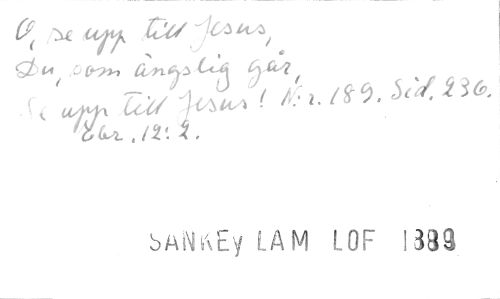 O, se upp till Jesus,
Du, som ängslig går,
Se upp till Jesus! N:r. 189. Sid. 236.
Ebr. 12:2.
SANKEy LAM LOF 1889